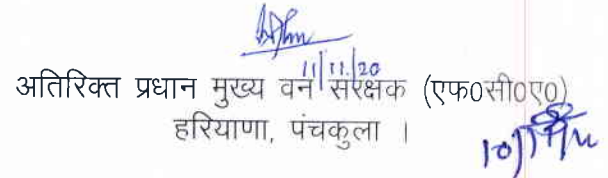 11/11/20
अतिरिक्त प्रधान मुख्य वन संरक्षक (एफ0सी0ए0)
हरियाणा, पंचकुला ।